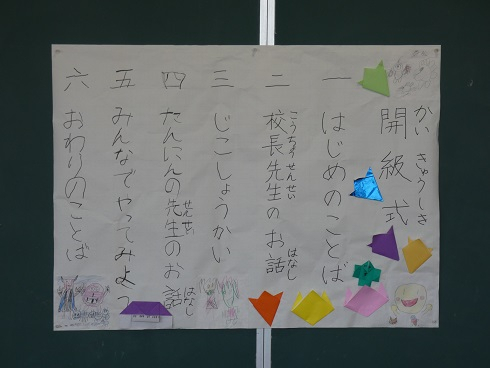 開級式
かい きゅうしき
一 はじめのことば
二 校長先生のお話
こうちょうせんせい はなし
三 じこしょうかい
四 たんにんの先生のお話
せんせい はなし
五 みんなでやってみよう
六 おわりのことば